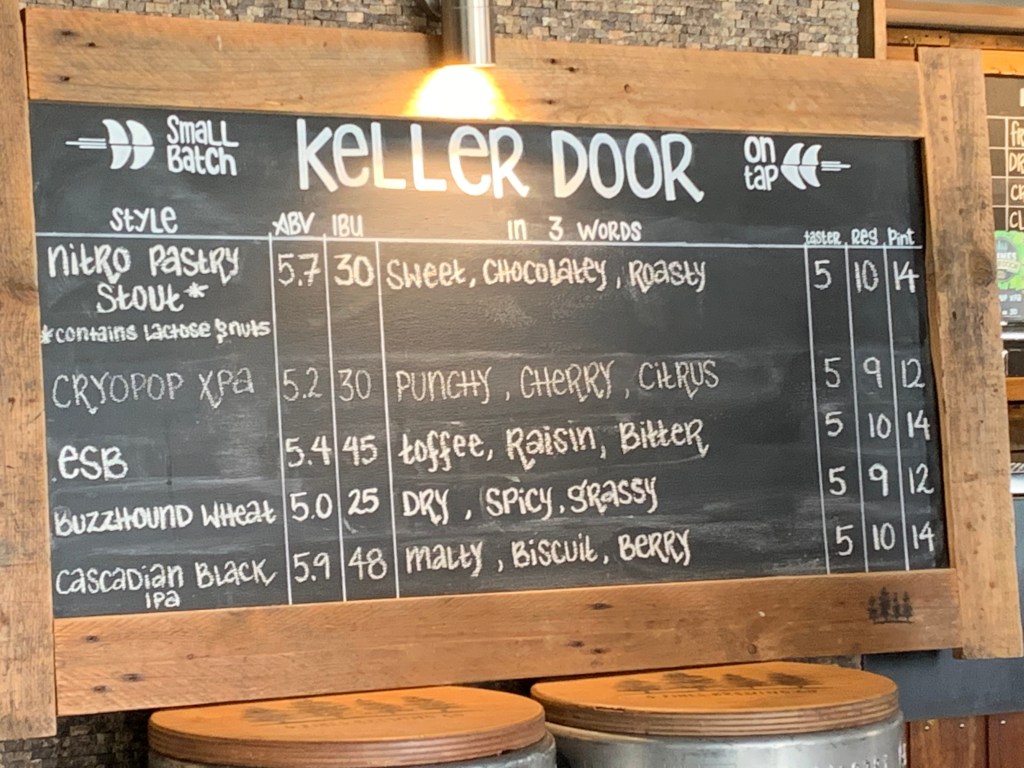 Small Batch
KELLER DOOR
on tap
STYLE ABV IBU in 3 WORDS taster Reg Pint
NITRO PASTRY 5.7 30 SWEET, CHOCOLATEY, ROASTY 5 10 14
STOUT*
*contains Lactose & nuts
CRYOPOP XPA 5.2 30 PUNCHY, CHERRY, CITRUS 5 9 12
ESB 5.4 45 toffee, Raisin, BITTER 5 10 14
BUZZHOUND WHEAT 5.0 25 DRY, SPICY, GRASSY 5 9 12
CASCADIAN BLACK 5.9 48 malty, BISCUIT, BERRY 5 10 14
IPA